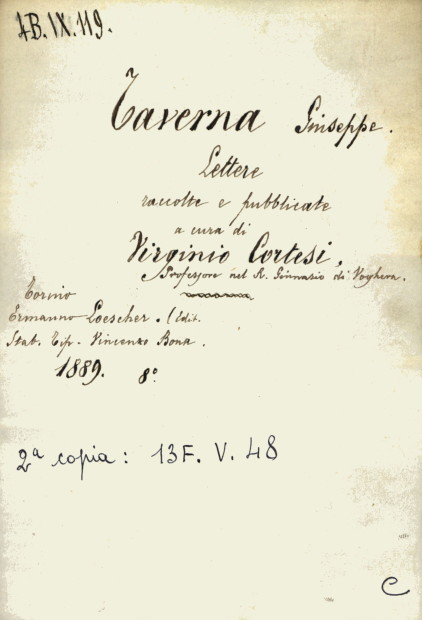 4B.IX.119.
Taverna Giuseppe.
Lettere
raccolte e pubblicate
a cura di
Virginio Cortesi,
Professore nel R. Ginnasio di Voghera.
Torino
Ermanno Loescher. Edit.
Stab. Tip. Vincenzo Bona.
1889. 8°
2ª copia: 13F. V. 48
C